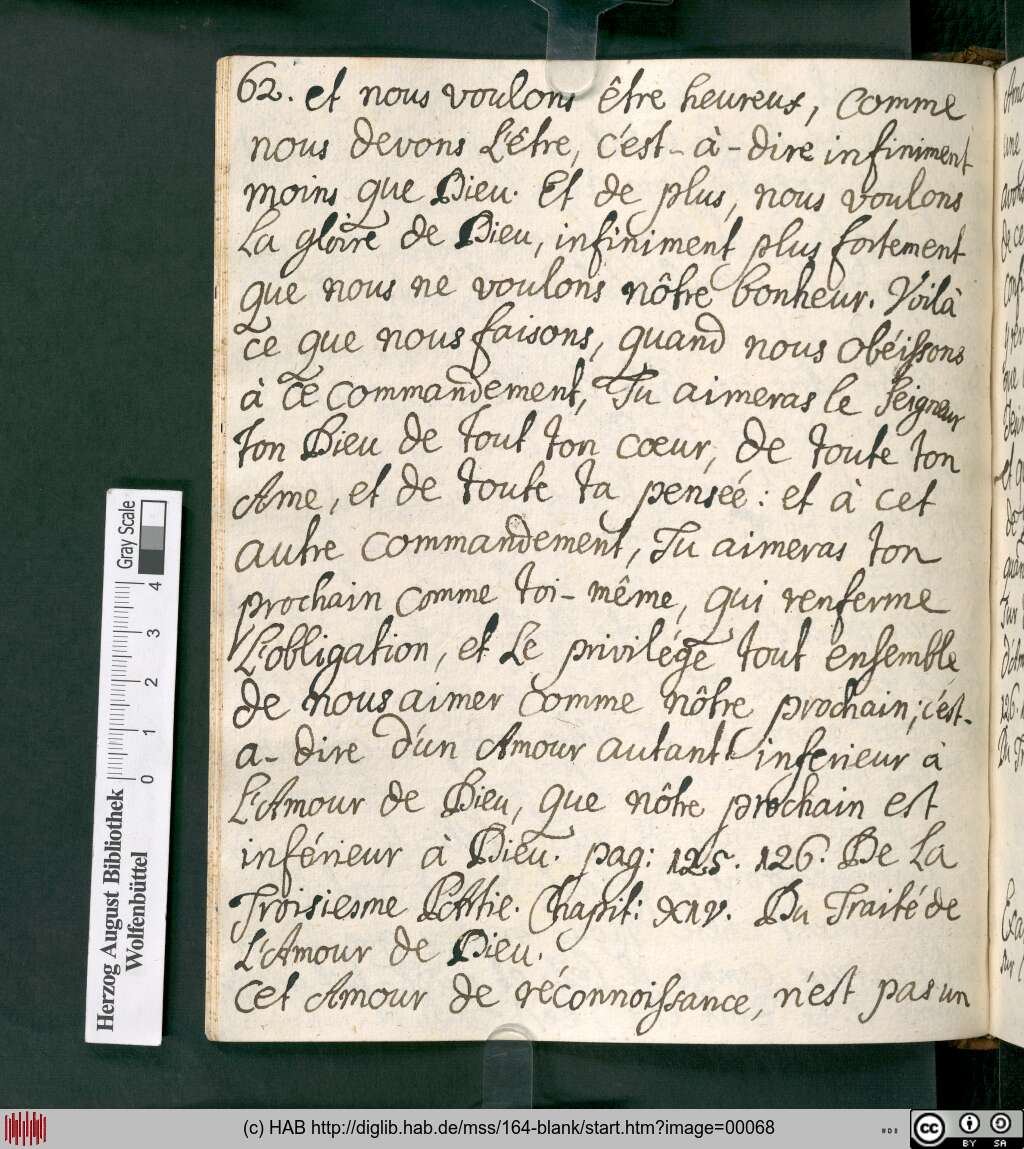 62. et nous voulons être heureux, comme
nous devons L'Être, c'est-à-dire infiniment
moins que Dieu. Et de plus, nous voulons
La gloire de Dieu, infiniment plus fortement
que nous ne voulons nôtre bonheur. Voilà
ce que nous faisons, quand nous obéissons
à ce commandement, Tu aimeras le Seigneur
ton Dieu de tout ton cœur, de toute ton
Ame, et de toute ta pensée: et à cet
autre commandement, Tu aimeras ton
prochain comme toi-même, qui renferme
L'obligation, et Le privilége tout ensemble
de nous aimer comme nôtre prochain; c'est-
a-dire d'un Amour autant inferieur à
L'Amour de Dieu, que nôtre prochain est
inférieur à Dieu. pag: 125. 126. De La
Troisiesme Partie. Chapit: XIV. Du Traité de
L'Amour de Dieu.
Cet Amour de réconnoissance, n'est pas un
Herzog August Bibliothek
Wolfenbüttel
Gray Scale
0 1 2 3 4
(c) HAB http://diglib.hab.de/mss/164-blank/start.htm?image=00068
cc BY SA